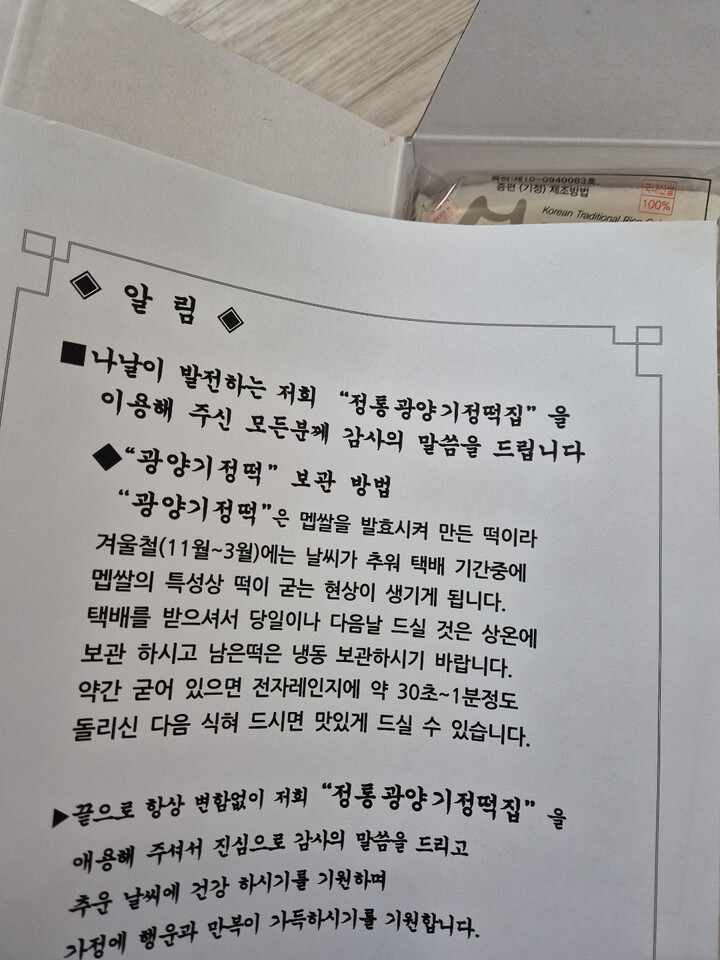 특허:제10-0940083호.
증편 (기정) 제조방법
국내산쌀
100%
Korean Traditional Rice
알 림
나날이 발전하는 저희 “정통광양기정떡집” 을
이용해 주신 모든분께 감사의 말씀을 드립니다
“광양기정떡” 보관 방법
“광양기정떡”은 멥쌀을 발효시켜 만든 떡이라
겨울철(11월~3월)에는 날씨가 추워 택배 기간중에
멥쌀의 특성상 떡이 굳는 현상이 생기게 됩니다.
택배를 받으셔서 당일이나 다음날 드실 것은 상온에
보관 하시고 남은떡은 냉동 보관하시기 바랍니다.
약간 굳어 있으면 전자레인지에 약 30초~1분정도
돌리신 다음 식혀 드시면 맛있게 드실 수 있습니다.
끝으로 항상 변함없이 저희 “정통광양기정떡집” 을
애용해 주셔서 진심으로 감사의 말씀을 드리고
추운 날씨에 건강 하시기를 기원하며
가정에 행운과 만복이 가득하시기를 기원합니다.